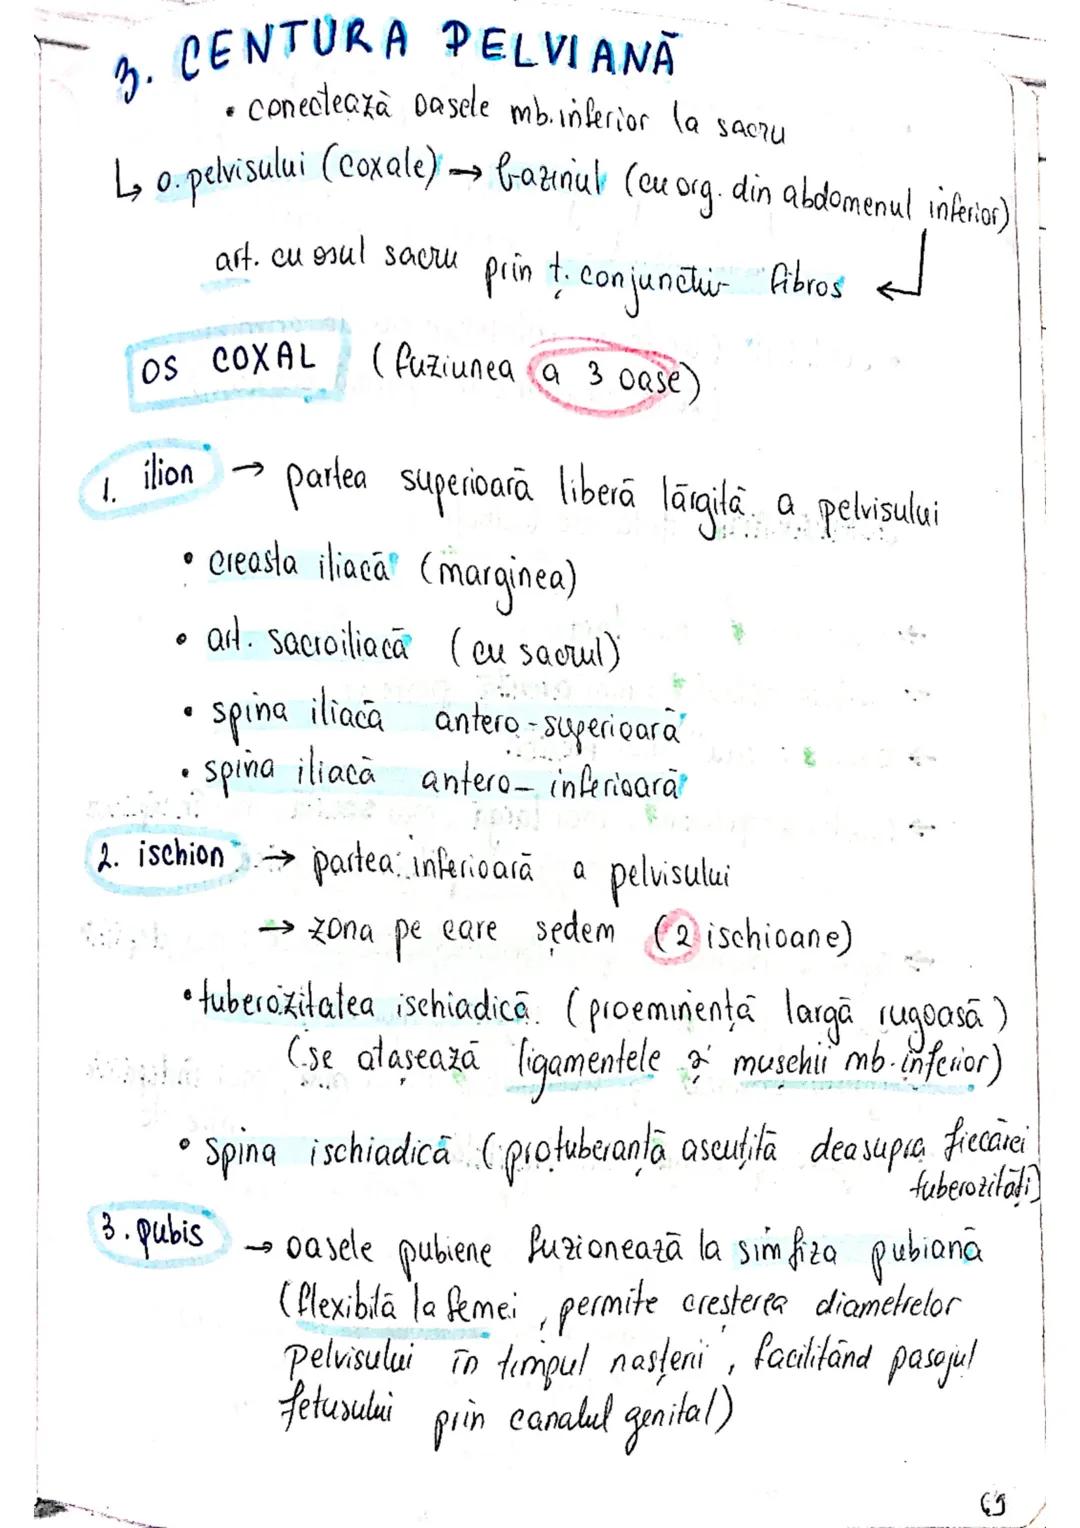 3. CENTURA PELVIANĂ
• conectează oasele mb. inferior la sacru
↳ o. pelvisului (coxale) → bazinul (cu org. din abdomenul inferior)
art. cu osul sacru prin ț. conjunctiv fibros ↵
OS COXAL (fuziunea a 3 oase)
1. ilion → partea superioară liberă lărgită a pelvisului
• creasta iliacă (marginea)
• art. sacroiliacă (cu sacrul)
• spina iliacă antero-superioară
• spina iliacă antero-inferioară
2. ischion → partea inferioară a pelvisului
→ zona pe care ședem (2 ischioane)
• tuberozitatea ischiadică (proeminență largă rugoasă)
(se atașează ligamentele și mușchii mb. inferior)
• Spina ischiadică (protuberanță ascuțită deasupra fiecărei
tuberozități)
3. pubis → oasele pubiene fuzionează la simfiza pubiană
(flexibilă la femei, permite creșterea diametrelor
pelvisului în timpul nașterii, facilitând pasajul
fetusului prin canalul genital)
69